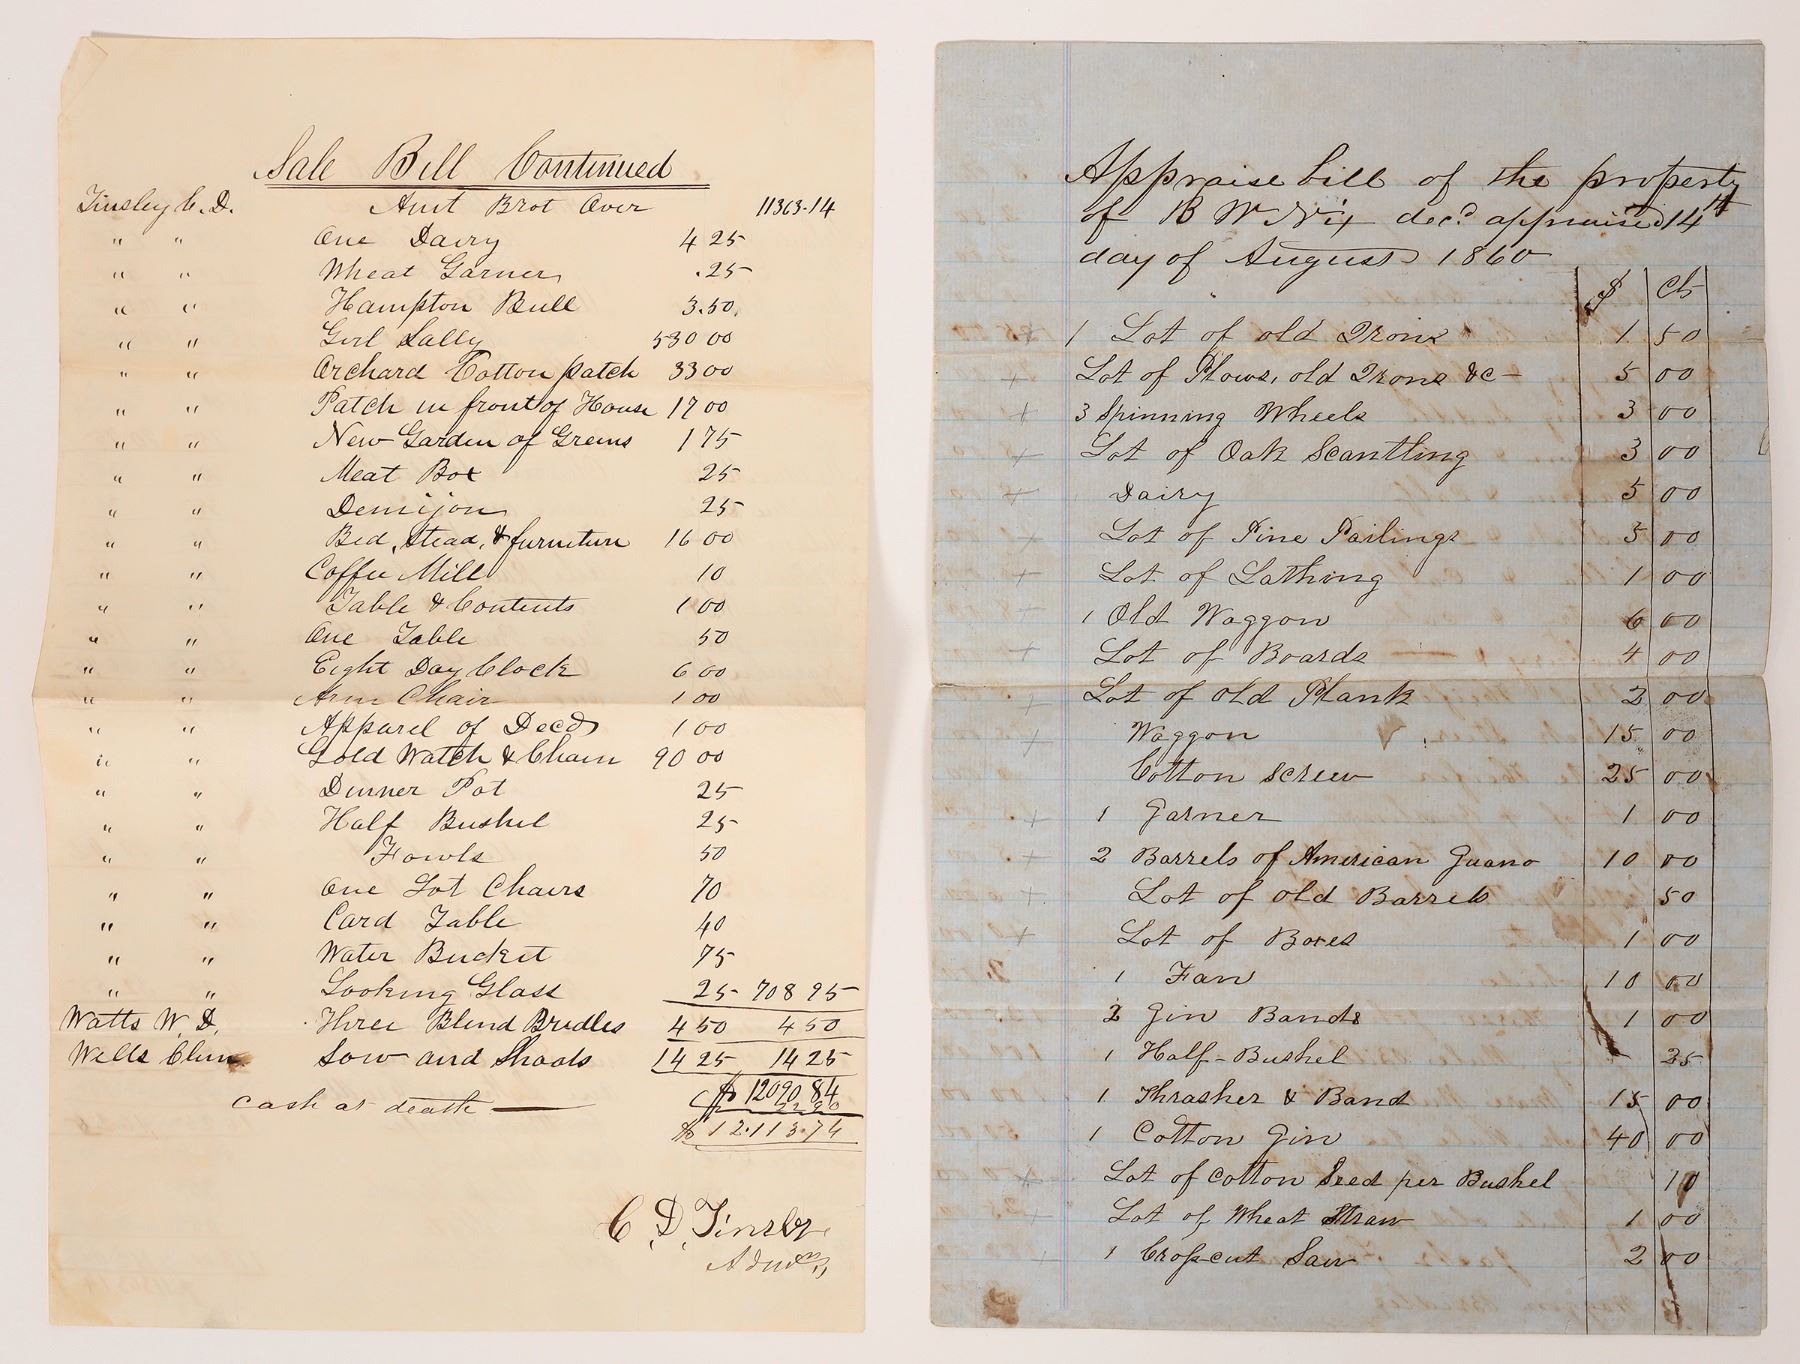 Sale Bill Continued
Tinsley C. D. Amt Brot Over 11363.14
" " One Dairy 4 25
" " Wheat Garner .25
" " Hampton Bull 3.50.
" " Girl Sally 530 00
" " Orchard Cotton patch 33 00
" " Patch in front of House 17 00
" " New Garden of Greens 1 75
" " Meat Box 25
" " Demijon 25
" " Bed, Stead, & furniture 16 00
" " Coffee Mill 10
" " Table & Contents 1 00
" " One Table 50
" " Eight Day Clock 6 00
" " Arm Chair 1 00
" " Apparel of Decd 1 00
" " Gold Watch & Chain 90 00
" " Dinner Pot 25
" " Half Bushel 25
" " Fowls 50
" " One Lot Chairs 70
" " Card Table 40
" " Water Bucket 75
" " Looking Glass 25 708 95
Watts W. D. Three Blind Bridles 4 50 4 50
Wells Clum Sow and Shoats 14 25 14 25
$ 12090 84
Cash at death — 22 90
$ 12.113.74
C. D. Tinsley
Admr
Appraise bill of the property
of B W Nix decd appraised 14th
day of August 1860
$ cts
1 Lot of old Irons 1 50
Lot of Plows, old Irons &c - 5 00
3 Spinning Wheels 3 00
Lot of Oak Scantling 3 00
Dairy 5 00
Lot of Pine Pailings 5 00
Lot of Lathing 1 00
1 Old Waggon 6 00
Lot of Boards — 4 00
Lot of old Plank 2 00
Waggon 15 00
Cotton Screw 25 00
1 Garner 1 00
2 Barrels of American Guano 10 00
Lot of old Barrels 50
Lot of Boxes 1 00
1 Fan 10 00
2 Gin Bands 1 00
1 Half-Bushel 25
1 Thrasher & Band 15 00
1 Cotton Gin 40 00
Lot of Cotton Seed per Bushel 10
Lot of Wheat Straw 1 00
1 Cross-cut Saw 2 00